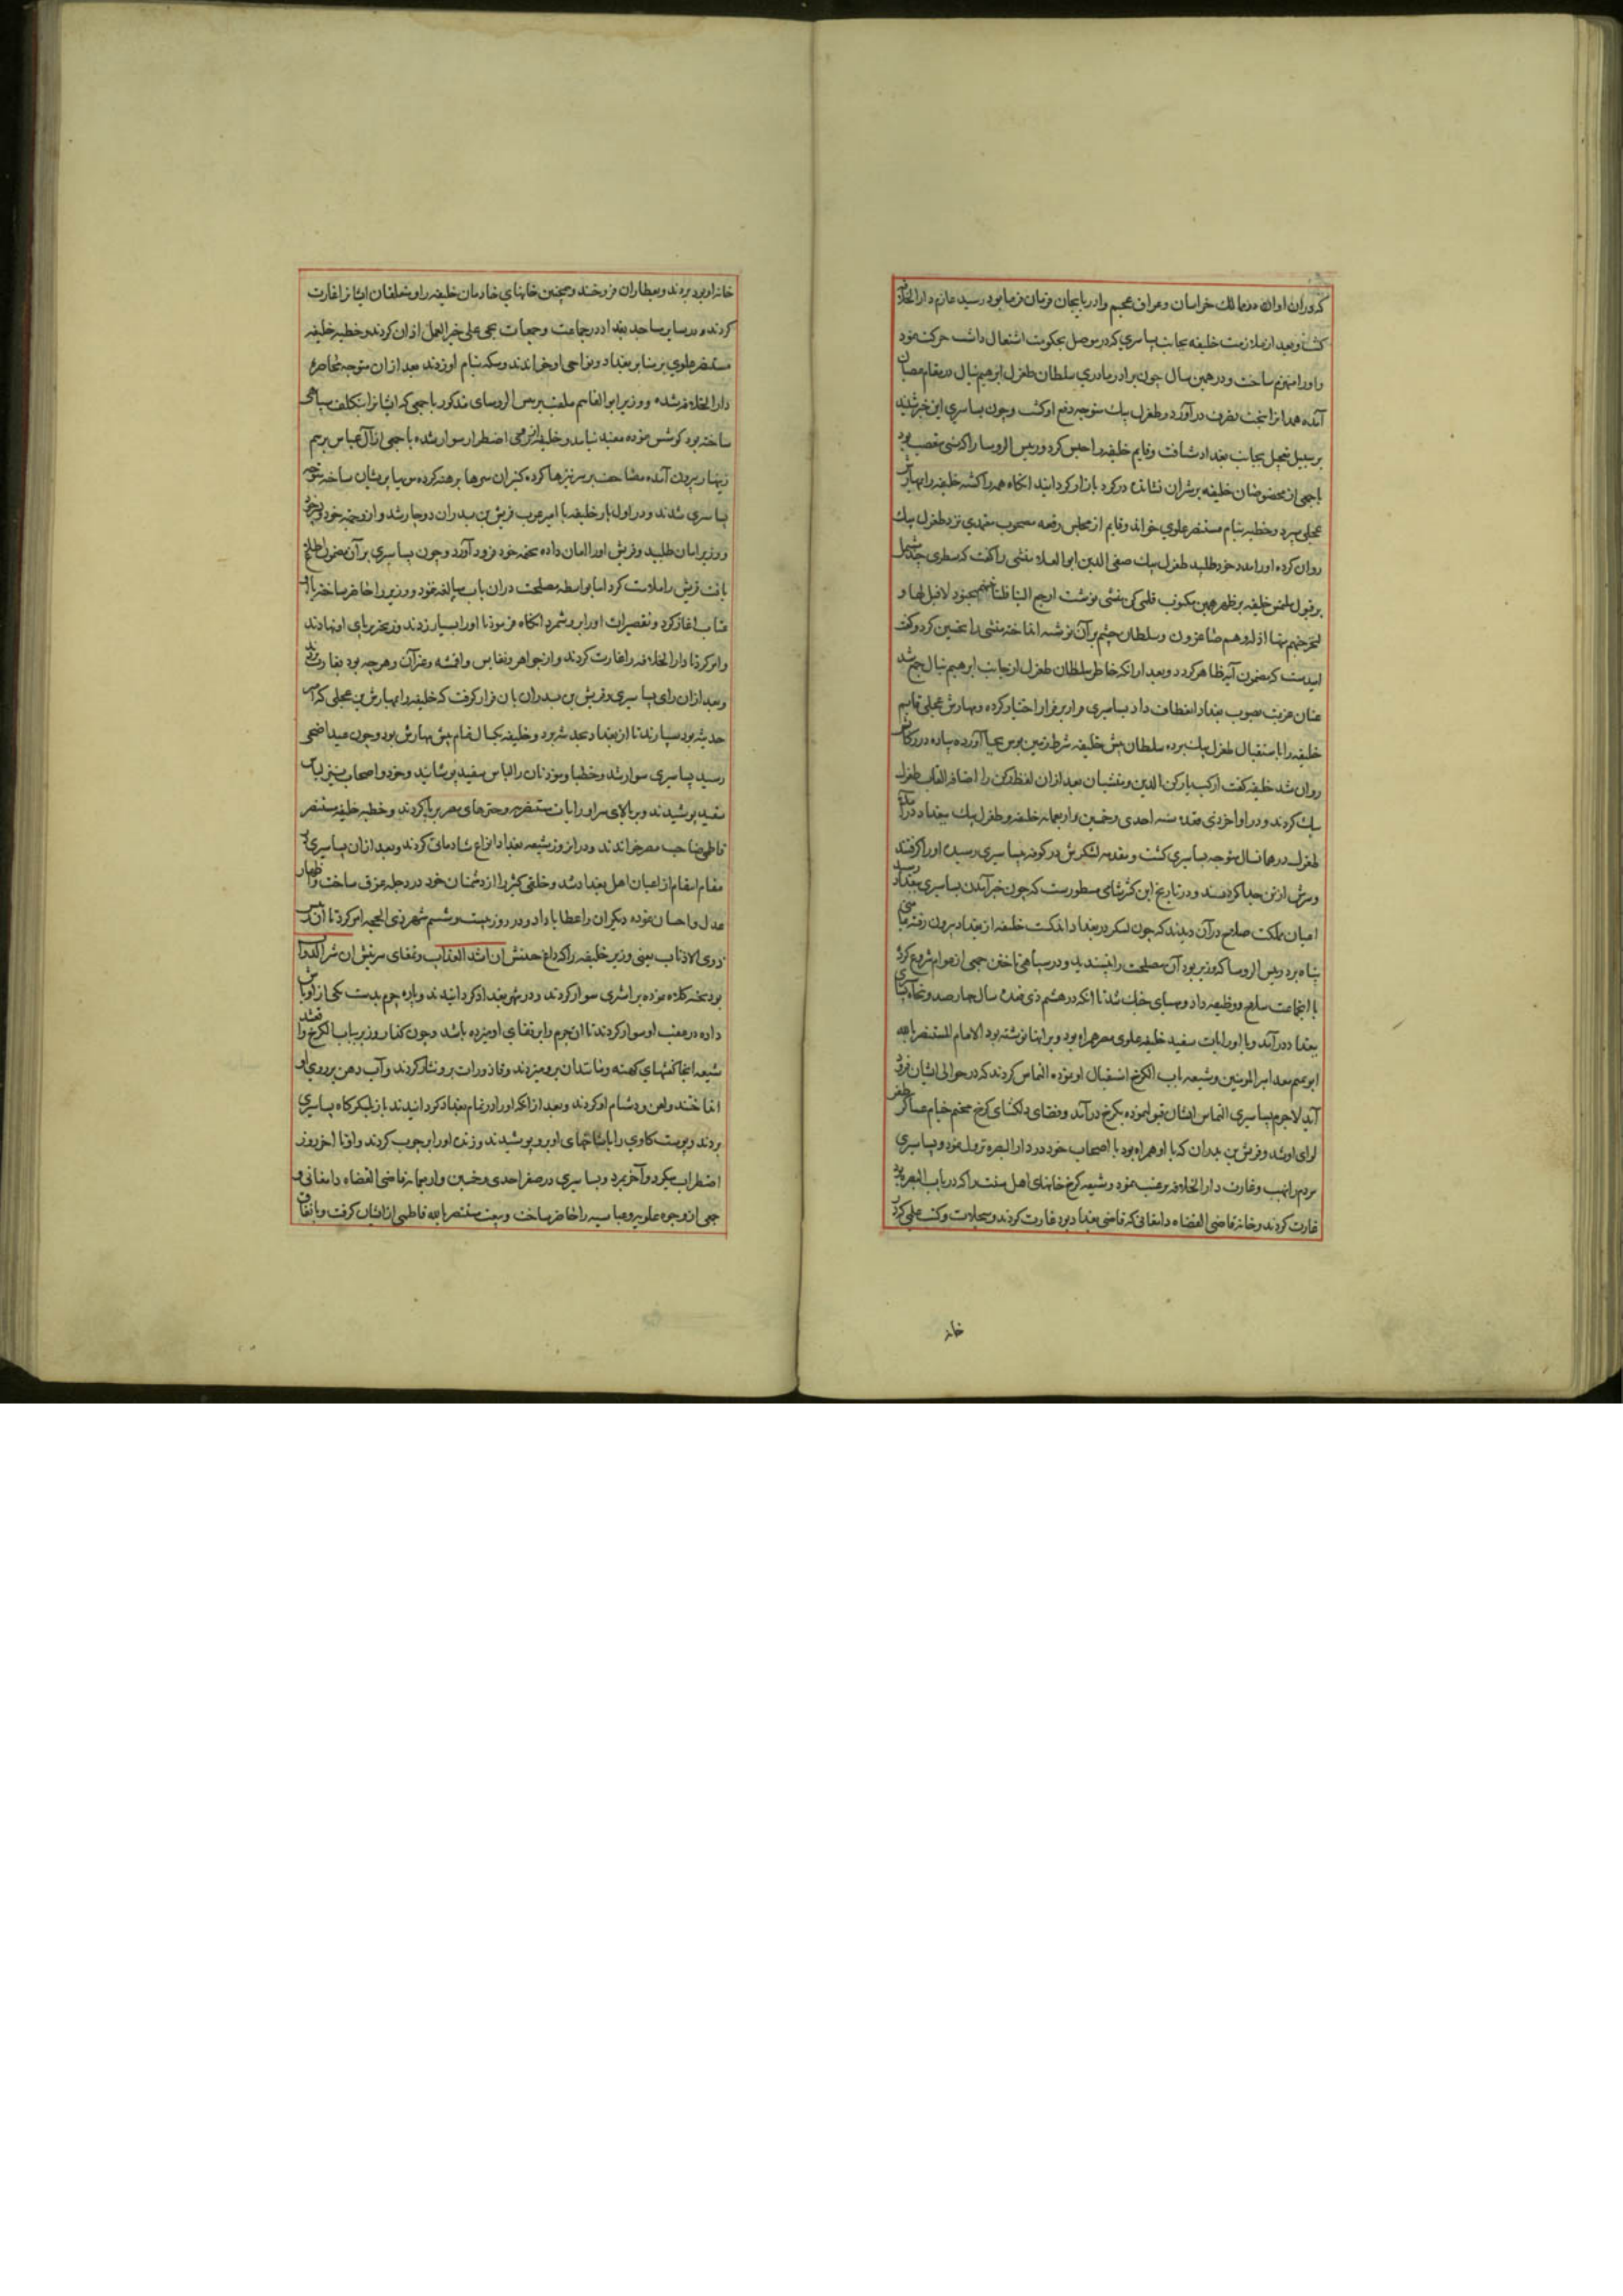 که در آن اوان در ممالک خراسان و عراق عجم و آذربایجان فرمان فرما بود رسید عازم دار الخلافه
کشت و بعد از ملازمت خلیفه بجانب بساسیری که در موصل بحکومت اشتغال داشت حرکت نمود
و او را منهزم ساخت و در همین سال چون برادر مادری سلطان طغرل ابرهیم نیال در مقام عصیان
آمده همدانرا بتحت تصرف در آورد و طغرل بیک متوجه دفع او کشت و چون بساسیری این خبر شنید
بر سبیل تعجیل بجانب بغداد شتافت و قایم خلیفه را حبس کرد و رییس الروسا را که سنی متعصب بود
با جمعی از مخصوصان خلیفه بر شتران نشانده در کرد بازار کردانید انکاه همه را کشته خلیفه را بمهارش
عجلی سپرد و خطبه بنام مستنصر علوی خواند و قایم از محبس رقعه مصحوب معتمدی نزد طغرل بیک
روان کرده او را بمدد خود طلبید طغرل بیک صفی الدین ابو العلاء منشی را کفت که سطری چند مشتمل
بر قبول ملتمس خلیفه بر ظهر همین مکتوب قلمی کن منشی نوشت ارجع الیهم فلنأتینهم بجنود لا قبل لهم بها و
لنخرجنهم منها اذلة و هم صاغرون و سلطان چشم بر آن نوشته انداخته منشی را تحسین کرد و کفت
امیدست که مضمون آیه ظاهر کردد و بعد از انکه خاطر سلطان طغرل از جانب ابرهیم نیال جمع شد
عنان عزیمت بصوب بغداد انعطاف داد بساسیری فرار بر قرار اختیار کرده و مهارش عجلی قایم
خلیفه را باستقبال طغرل بیک برده سلطان پیش خلیفه شرط زمین بوس بجا آورده پیاده در رکابش
روان شد خلیفه کفت ارکب یا رکن الدین و منشیان بعد از ان لفظ رکن را اضافه القاب طغرل
بیک کردند و در اواخر ذی قعده سنه احدی و خمسین و اربعمایه خلیفه و طغرل بیک ببغداد در آمدند
طغرل در همان سال متوجه بساسیری کشت و مقدمه لشکرش در کوفه ببساسیری رسیده او را کرفتند
و سرش از تن جدا کردند و در تاریخ ابن کثیر شامی مسطورست که چون خبر آمدن بساسیری ببغداد رسید
اعیان مملکت صلاح در آن دیدند که چون لشکر در بغداد اندکست خلیفه از بغداد بیرون رفته بمامنی
پناه برد رییس الروسا که وزیر بود آن مصلحت را نپسندید و در سپاهی ساختن جمعی از عوام شروع کرد
با ایجماعت سلاح و وظیفه داد و مهیای جنک شد تا انکه در هشتم ذی قعده سال چهار صد و پنجاه بساسیری
ببغداد در آمد و با او رایات سفید خلیفه علوی مصر همراه بود و بر انها نوشته بود الامام المستنصر بالله
ابو تمیم معد امیر المومنین و شیعه باب الکرخ استقبال او نموده التماس کردند که در حوالی ایشان فرود
آید لاجرم بساسیری التماس ایشان قبول نموده بکرخ در آمد و فضای دلکشای کرخ مخیم خیام عساکر ظفر
لوای او شد و قریش بن بدران که با او همراه بود با اصحاب خود در دار البصره نزول نمود و بساسیری
مردم را بنهب و غارت دار الخلافه ترغیب نمود و شیعه کرخ خانهای اهل سنت را که در باب البصره بود
غارت کردند و خانه قاضی القضاه دامغانی که قاضی بغداد بود غارت کردند و سجلات و کتب علمی که در
خانه
خانه او بود بردند و بعطاران فروختند و همچنین خانهای خادمان خلیفه را و متعلقان ایشانرا غارت
کردند و در سایر مساجد بغداد در جماعت و جمعات بحی علی خیر العمل اذان کردند و خطبه خلیفه
مستنصر علوی بر منابر بغداد و نواحی او خواندند و سکه بنام او زدند بعد از ان متوجه محاصره
دار الخلافه شده و وزیر ابو القاسم ملقب برییس الروسای مذکور با جمعی که ایشانرا بتکلف سپاهی
ساخته بود کوشش نموده مفید نیامد و خلیفه از روی اضطرار سوار شده با جمعی از آل عباس برسم
زینهار بیرون آمده مصاحف بر سر نیزها کرده کنیزان سرها برهنه کرده مویها پریشان ساخته متوجه
بساسیری شدند و در اول بار خلیفه با امیر عرب قریش بن بدران دوچار شد و از و بجهة خود و بجهة
وزیر امان طلبید و قریش او را امان داده بخیمه خود فرود آورد و چون بساسیری بر آن مضمون اطلاع
یافت قریش را ملامت کرد اما بواسطه مصلحت در ان باب مبالغه ننمود و وزیر را حاضر ساخته با او
عتاب اغاز کرد و تقصیرات او را بر و شمرد انکاه فرمود تا او را بسیار زدند و زنجیر بر پای او نهادند
و امر کرد تا دار الخلافه را غارت کردند و از جواهر و نفایس و اقمشه و غیر آن و هر چه بود بغارت بردند
و بعد از ان رای بساسیری و قریش بن بدران بان قرار کرفت که خلیفه را بمهارش بن مجلی که امیر
حدیثه بود سپارند تا از بغداد بحدیثه برد و خلیفه یکسال تمام پیش مهارش بود و چون عید اضحی
رسید بساسیری سوار شد و خطبا و موذنان را لباس سفید پوشانید و خود و اصحاب نیز لباس
سفید پوشیدند و بر بالای سر او رایات مستنصریه و چترهای مصر برپا کردند و خطبه خلیفه مستنصر
فاطمی صاحب مصر خواندند و در ان روز شیعه بغداد انواع شادمانی کردند و بعد از ان بساسیری در
مقام انتقام از اعیان اهل بغداد شد و خلقی کثیر را از دشمنان خود در دجله غرق ساخت و اظهار
عدل و احسان نموده دیکران را عطایا داد و در روز بیست و ششم شهر ذی الحجه امر کرد تا ان رییس
ذوی الاذناب یعنی وزیر خلیفه را که داغ جبینش ان اشد العذاب و قفای سرنیش ان شر الدواب
بود تخته کلاه نموده بر اشتری سوار کردند و در شهر بغداد کردانیدند و پاره چرم بدست یکی از اوباش
داده در عقب او سوار کردند تا ان چرم را بر قفای او میزده باشد و چون کذار وزیر بباب الکرخ افتد
شیعه انجا کفشهای کهنه و مانند ان بر و میزدند و قاذورات بر و نثار کردند و آب دهن بر روی او
انداختند و لعن و دشنام او کردند و بعد از انکه او را در تمام بغداد کردانیدند باز بلشکرکاه بساسیری
بردند و پوست کاوی را با شاخهای او بر و پوشیدند و زنده او را بر چوب کردند و او تا اخر روز
اضطراب میکرد و آخر بمرد و بساسیری در صفر احدی و خمسین و اربعمایه قاضی القضاه دامغانی و
جمعی از وجوه علویه و عباسیه را حاضر ساخت و بیعت مستنصر بالله فاطمی از ایشان کرفت و باتفاق